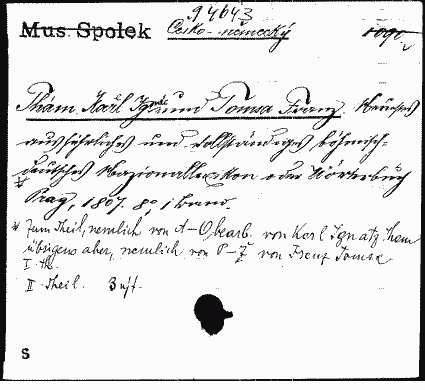 94643
Mus Społek Česko-německý 1090
Tham, Karl Ignaz und Tomsa Franz. Neuestes
ausführliches und vollständiges böhmisch-
deutsches Nazionallexikon oder Wörterbuch
Prag, 1807. 8°, 1 Band.
* Zum Theil, nemlich von A-O bearb. von Karl Ignatz Tham
übrigens aber, nemlich von P-Z von Franz Tomsa
I. th.
II Theil.
S